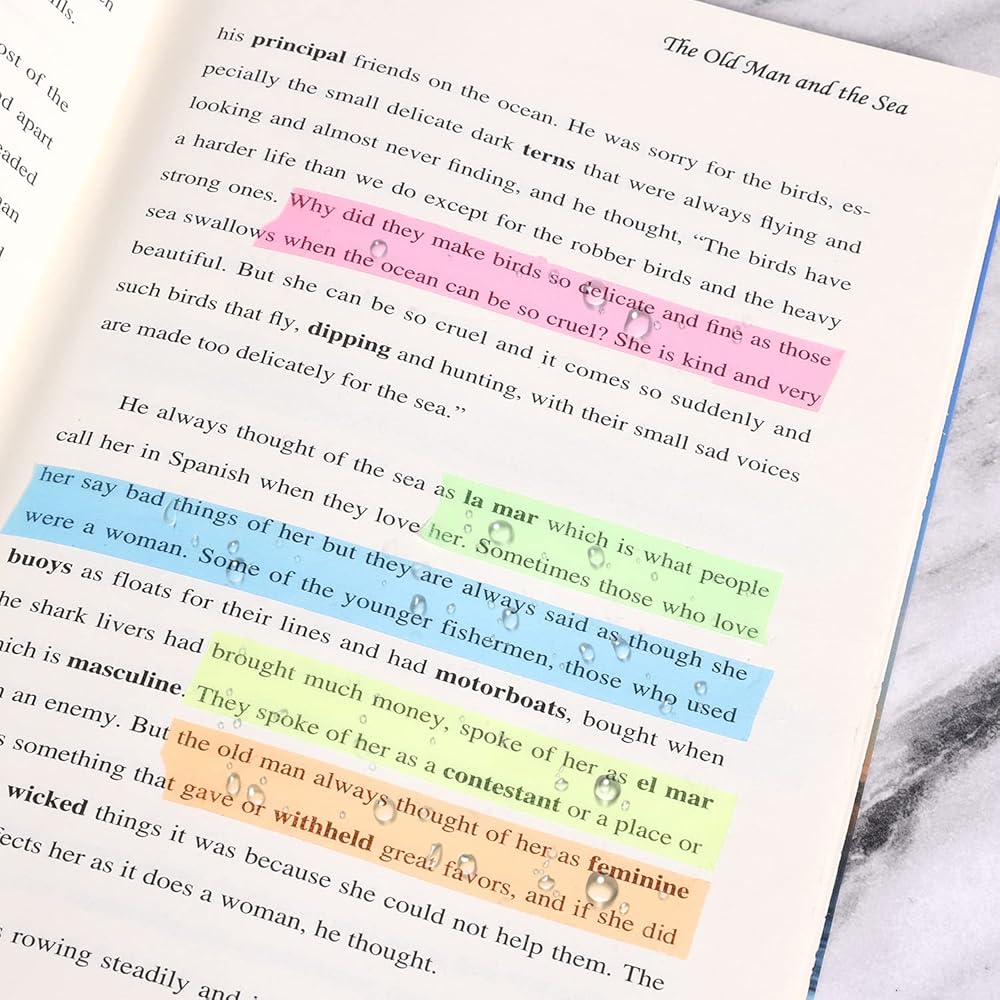 ost of the
apart
The Old Man and the Sea
his principal friends on the ocean. He was sorry for the birds, es-
pecially the small delicate dark terns that were always flying and
looking and almost never finding, and he thought, “The birds have
a harder life than we do except for the robber birds and the heavy
strong ones. Why did they make birds so delicate and fine as those
sea swallows when the ocean can be so cruel? She is kind and very
beautiful. But she can be so cruel and it comes so suddenly and
such birds that fly, dipping and hunting, with their small sad voices
are made too delicately for the sea.”
He always thought of the sea as la mar which is what people
call her in Spanish when they love her. Sometimes those who love
her say bad things of her but they are always said as though she
were a woman. Some of the younger fishermen, those who used
buoys as floats for their lines and had motorboats, bought when
he shark livers had brought much money, spoke of her as el mar
hich is masculine. They spoke of her as a contestant or a place or
an enemy. But the old man always thought of her as feminine
s something that gave or withheld great favors, and if she did
wicked things it was because she could not help them. The
fects her as it does a woman, he thought.
s rowing steadily and